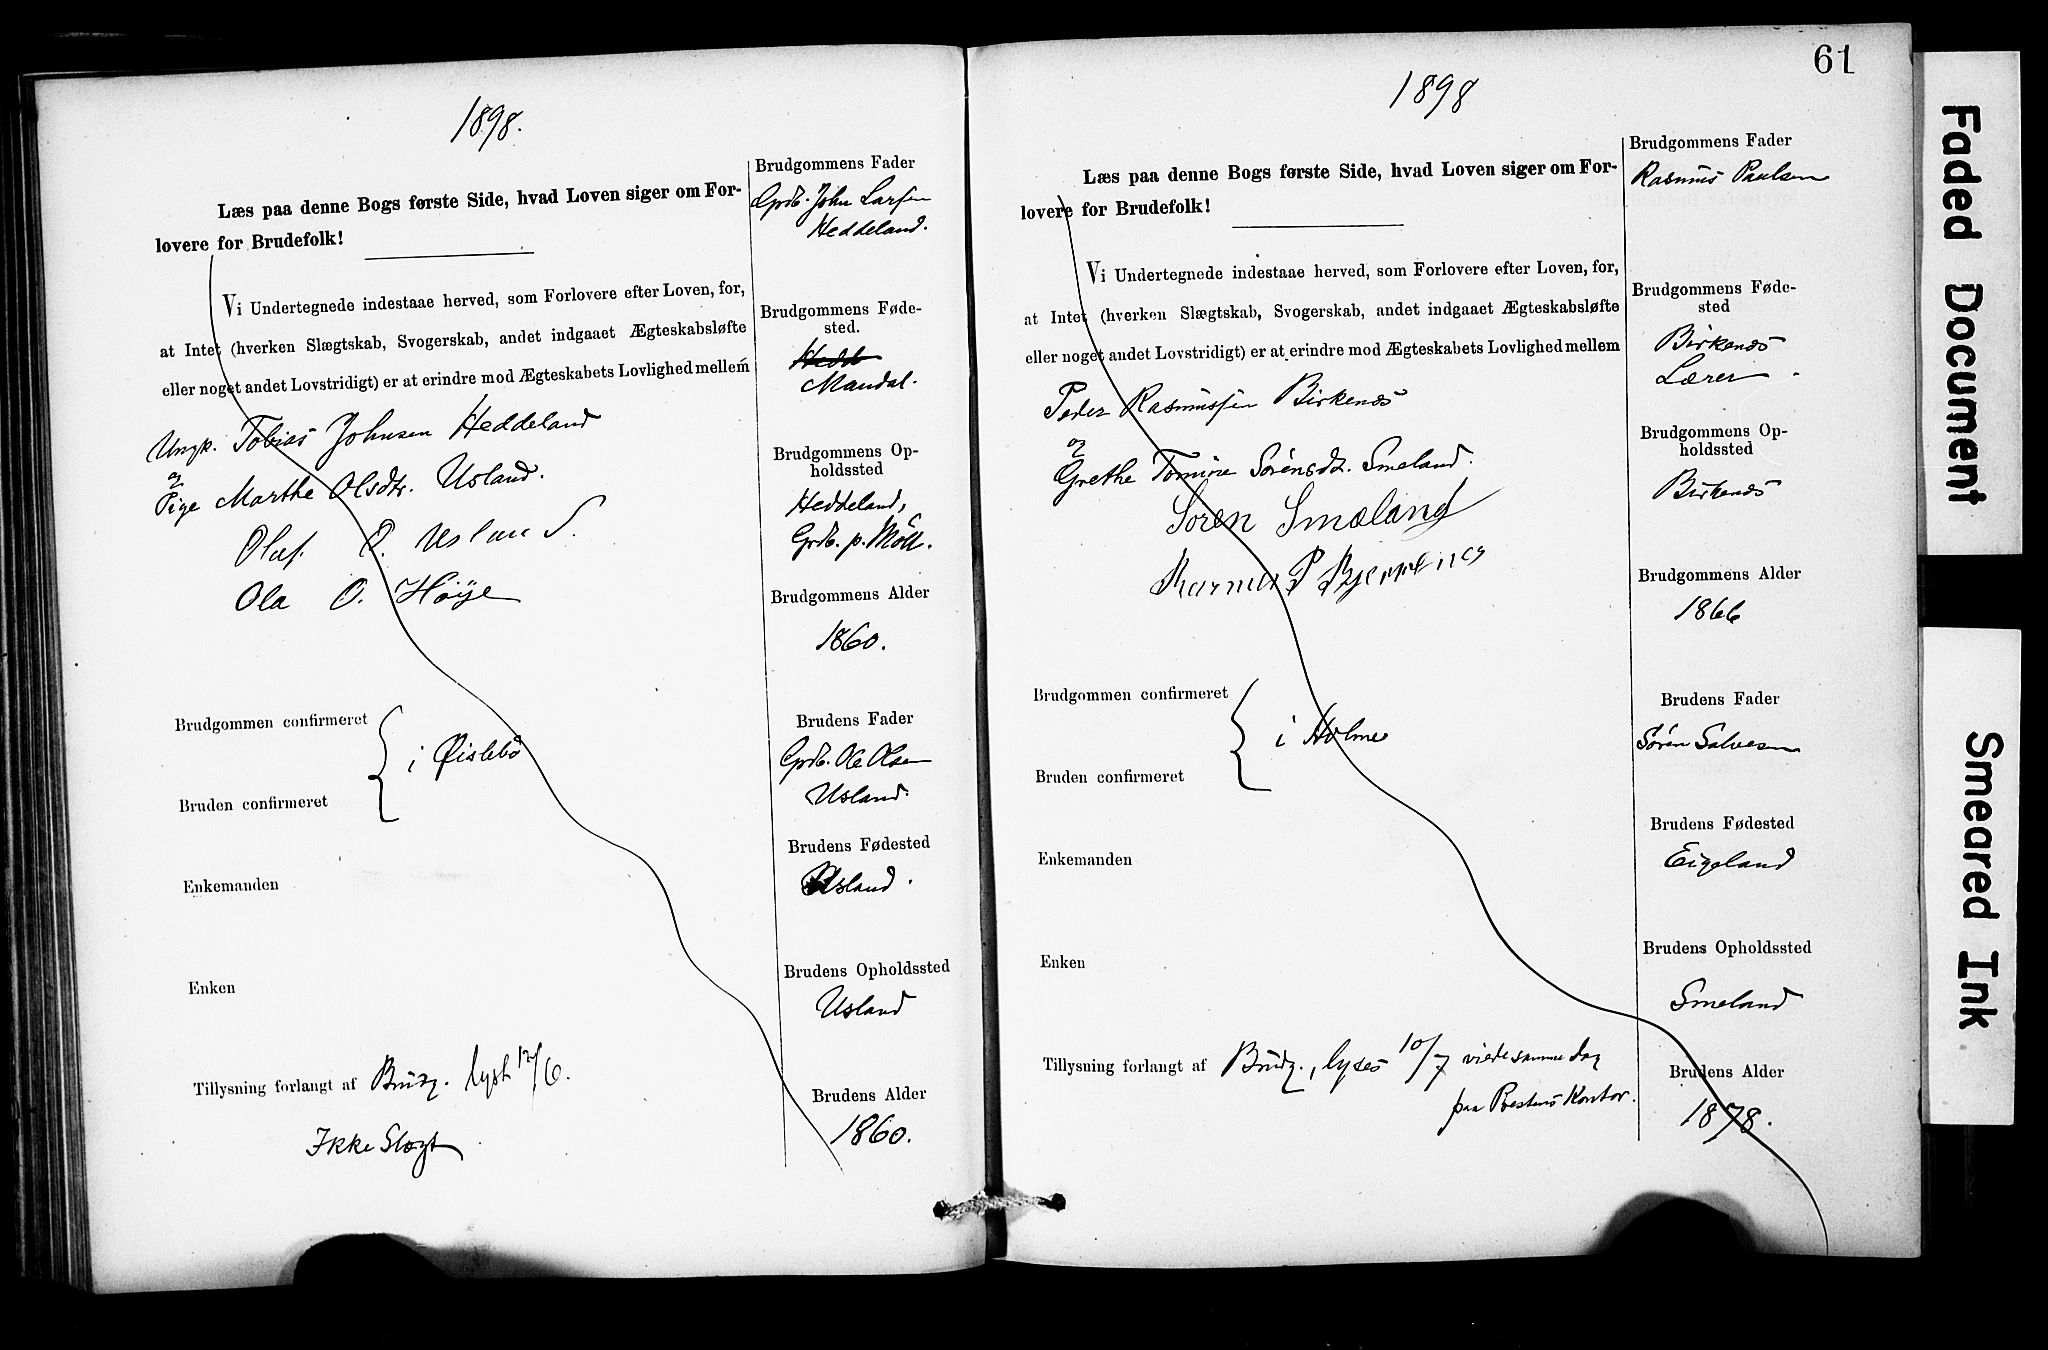 1898.
Læs paa denne Bogs første Side, hvad Loven siger om For-
lovere for Brudefolk!
Vi Undertegnede indestaae herved, som Forlovere efter Loven, for,
at Intet (hverken Slægtskab, Svogerskab, andet indgaaet Ægteskabsløfte
eller noget andet Lovstridigt) er at erindre mod Ægteskabets Lovlighed mellem
Ungk. Tobias Johnsen Heddeland
og
Pige Marthe Olsdtr. Usland.
Oluf O. Usland
Ola O. Høije
Brudgommen confirmeret
i Øislebö
Bruden confirmeret
Enkemanden
Enken
Tillysning forlangt af Brudg. lyst 12/6.
Ikke Slægt
Brudgommens Fader
Grdb. John Larsen
Heddeland.
Brudgommens Føde-
sted.
Hedd
Mandal.
Brudgommens Op-
holdssted
Heddeland,
Grdb. p. Möll.
Brudgommens Alder
1860.
Brudens Fader
Grdb. Ole Olsen
Usland.
Brudens Fødested
Usland.
Brudens Opholdssted
Usland
Brudens Alder
1860.
61
1898
Læs paa denne Bogs første Side, hvad Loven siger om For-
lovere for Brudefolk!
Vi Undertegnede indestaae herved, som Forlovere efter Loven, for,
at Intet (hverken Slægtskab, Svogerskab, andet indgaaet Ægteskabsløfte
eller noget andet Lovstridigt) er at erindre mod Ægteskabets Lovlighed mellem
Peder Rasmussen Birkenæs
og
Grethe Tomine Sörensdtr. Smeland.
Soren Smæland
Rasmus P
Brudgommen confirmeret
i Holme
Bruden confirmeret
Enkemanden
Enken
Tillysning forlangt af Brudg., lyses 10/7 viede samme Dag
paa Præstens Kontor.
Brudgommens Fader
Rasmus Paulsen
Brudgommens Føde-
sted
Birkenæs
Lærer.
Brudgommens Op-
holdssted
Birkenæs
Brudgommens Alder
1866
Brudens Fader
Sören Salvesen
Brudens Fødested
Eigeland
Brudens Opholdssted
Smeland
Brudens Alder
1878.
Faded Document
Smeared Ink